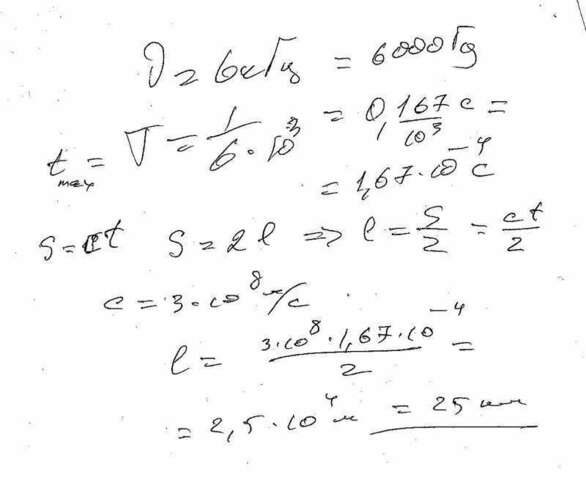 ν = 6кГц = 6000Гц
t max = T = 1/(6·10³) = 0,167/10³ с =
= 1,67·10⁻⁴ с
S = ct   S = 2l ⇒ l = S/2 = ct/2
c = 3·10⁸ м/с
l = (3·10⁸·1,67·10⁻⁴)/2 =
= 2,5·10⁴ м = 25 км